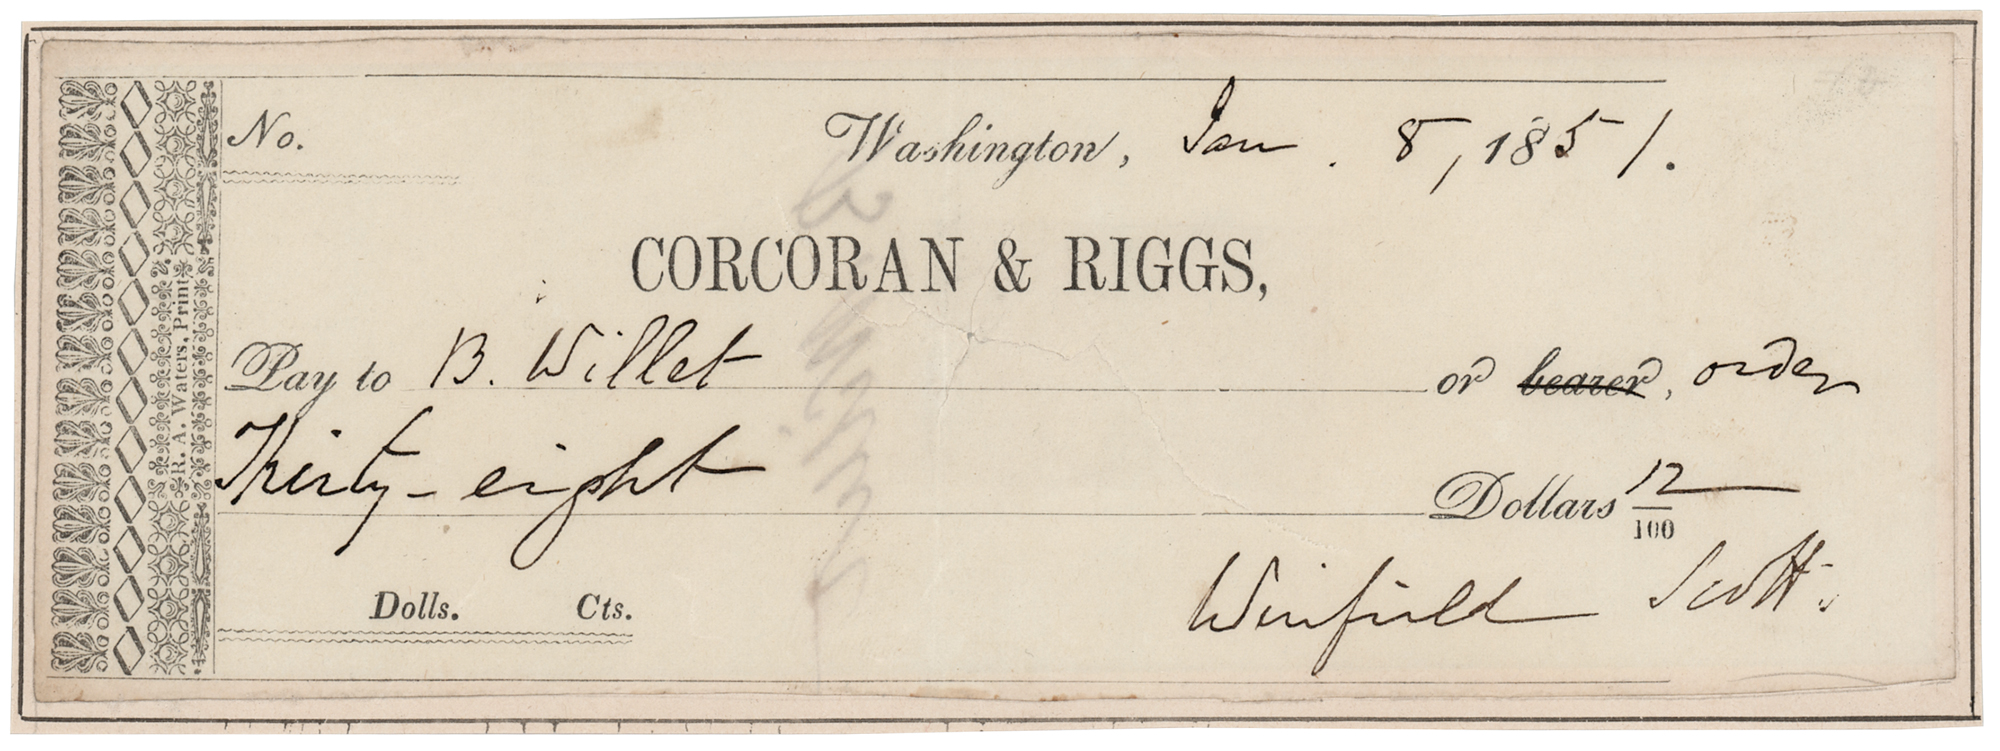 No. Washington, Jan. 8, 1851.
CORCORAN & RIGGS,
Pay to B. Willet or bearer, order
Thirty-eight Dollars 12/100
Dolls. Cts. Winfield Scott.
R. A. Waters, Print